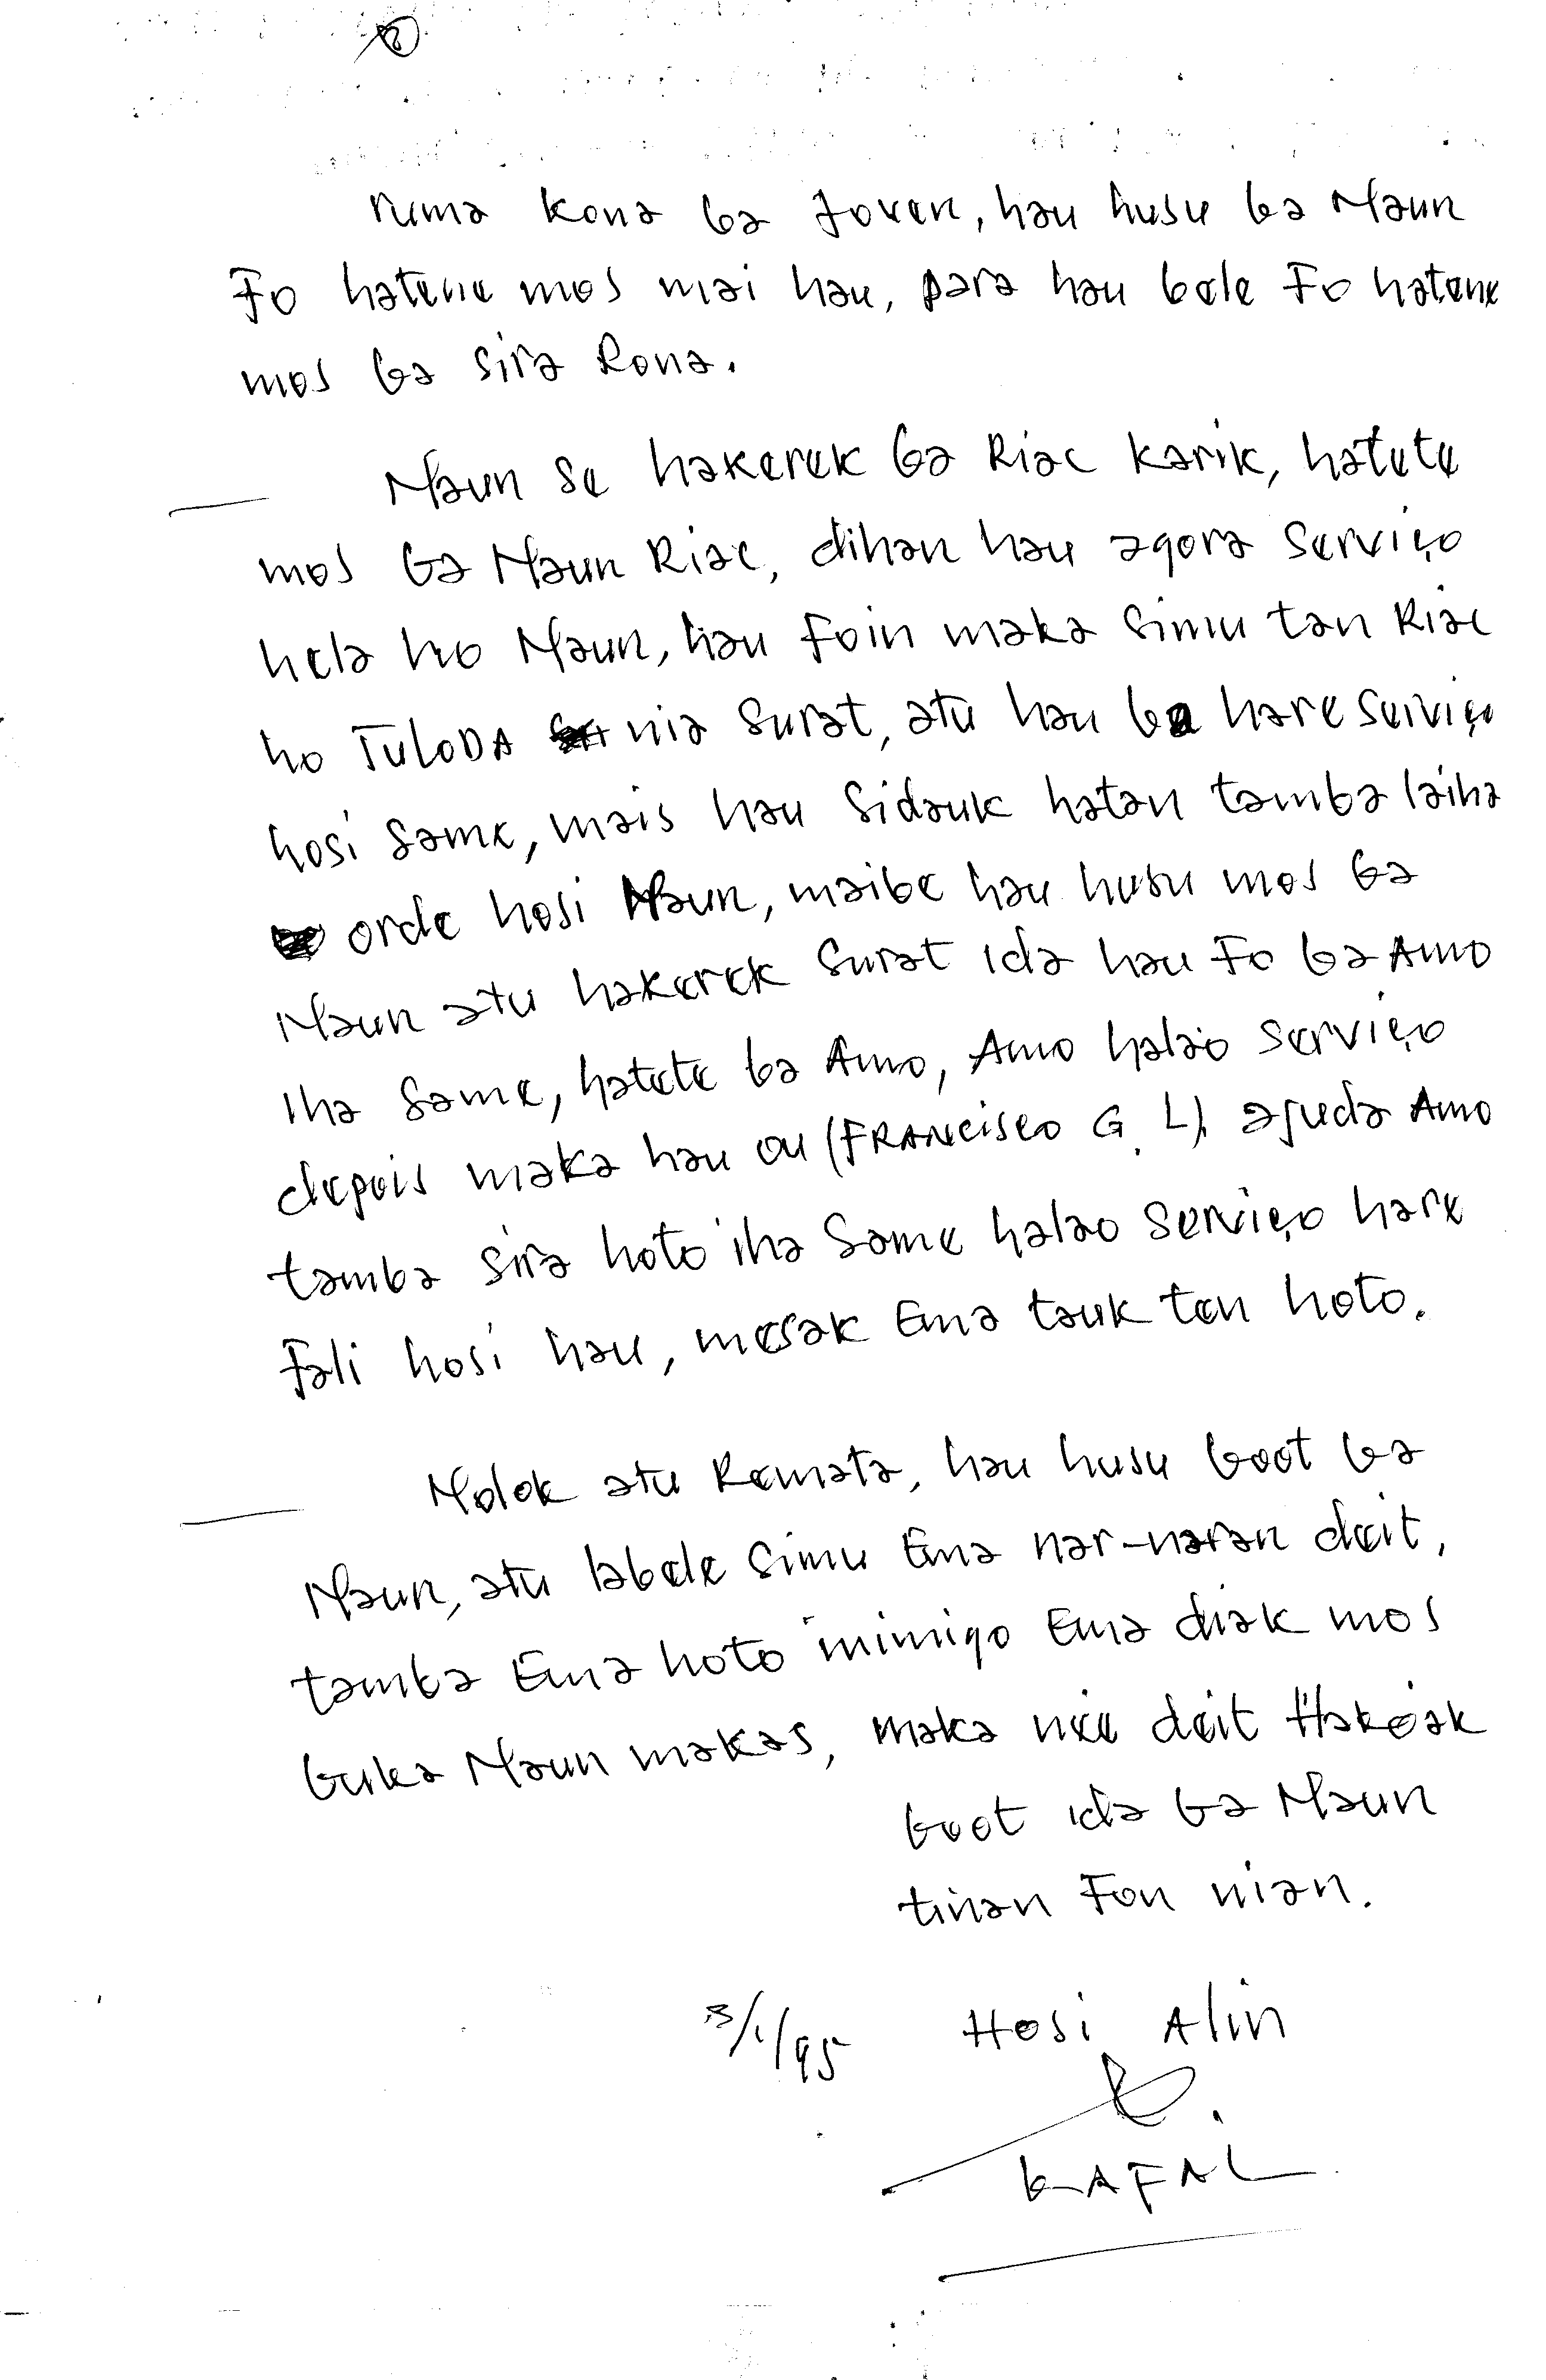 ruma kona ba Joven, hau husu ba Maun
Fo hatene mos mai hau, para hau bele Fo hatene
mos ba sira Rona.
Maun se hakerek ba Riac karik, hatete
mos ba Maun Riac, dihan hau agora serviço
hela ho Maun, hau Foin maka simu tan Riac
ho TULODA nia surat, atu hau ba hare serviço
hosi same, mais hau sidauk hatan tamba laiha
orde hosi Maun, maibe hau husu mos ba
Maun atu hakerek surat ida hau Fo ba Amo
iha same, hatete ba Amo, Amo halao serviço
depois maka hau ou (FRANCISCO G. L). ajuda Amo
tamba sira hoto iha Same halao serviço hare
Fali hosi hau, mesak Ema tauk ten hoto.
Molok atu Remata, hau husu boot ba
Maun, atu labele simu Ema nar-naran deit,
tamba Ema hoto inimigo Ema diak mos
buka Maun makas, maka nee deit Hakoak
boot ida ba Maun
tinan Fon nian.
3/1/95 Hosi Alin
KAFAL